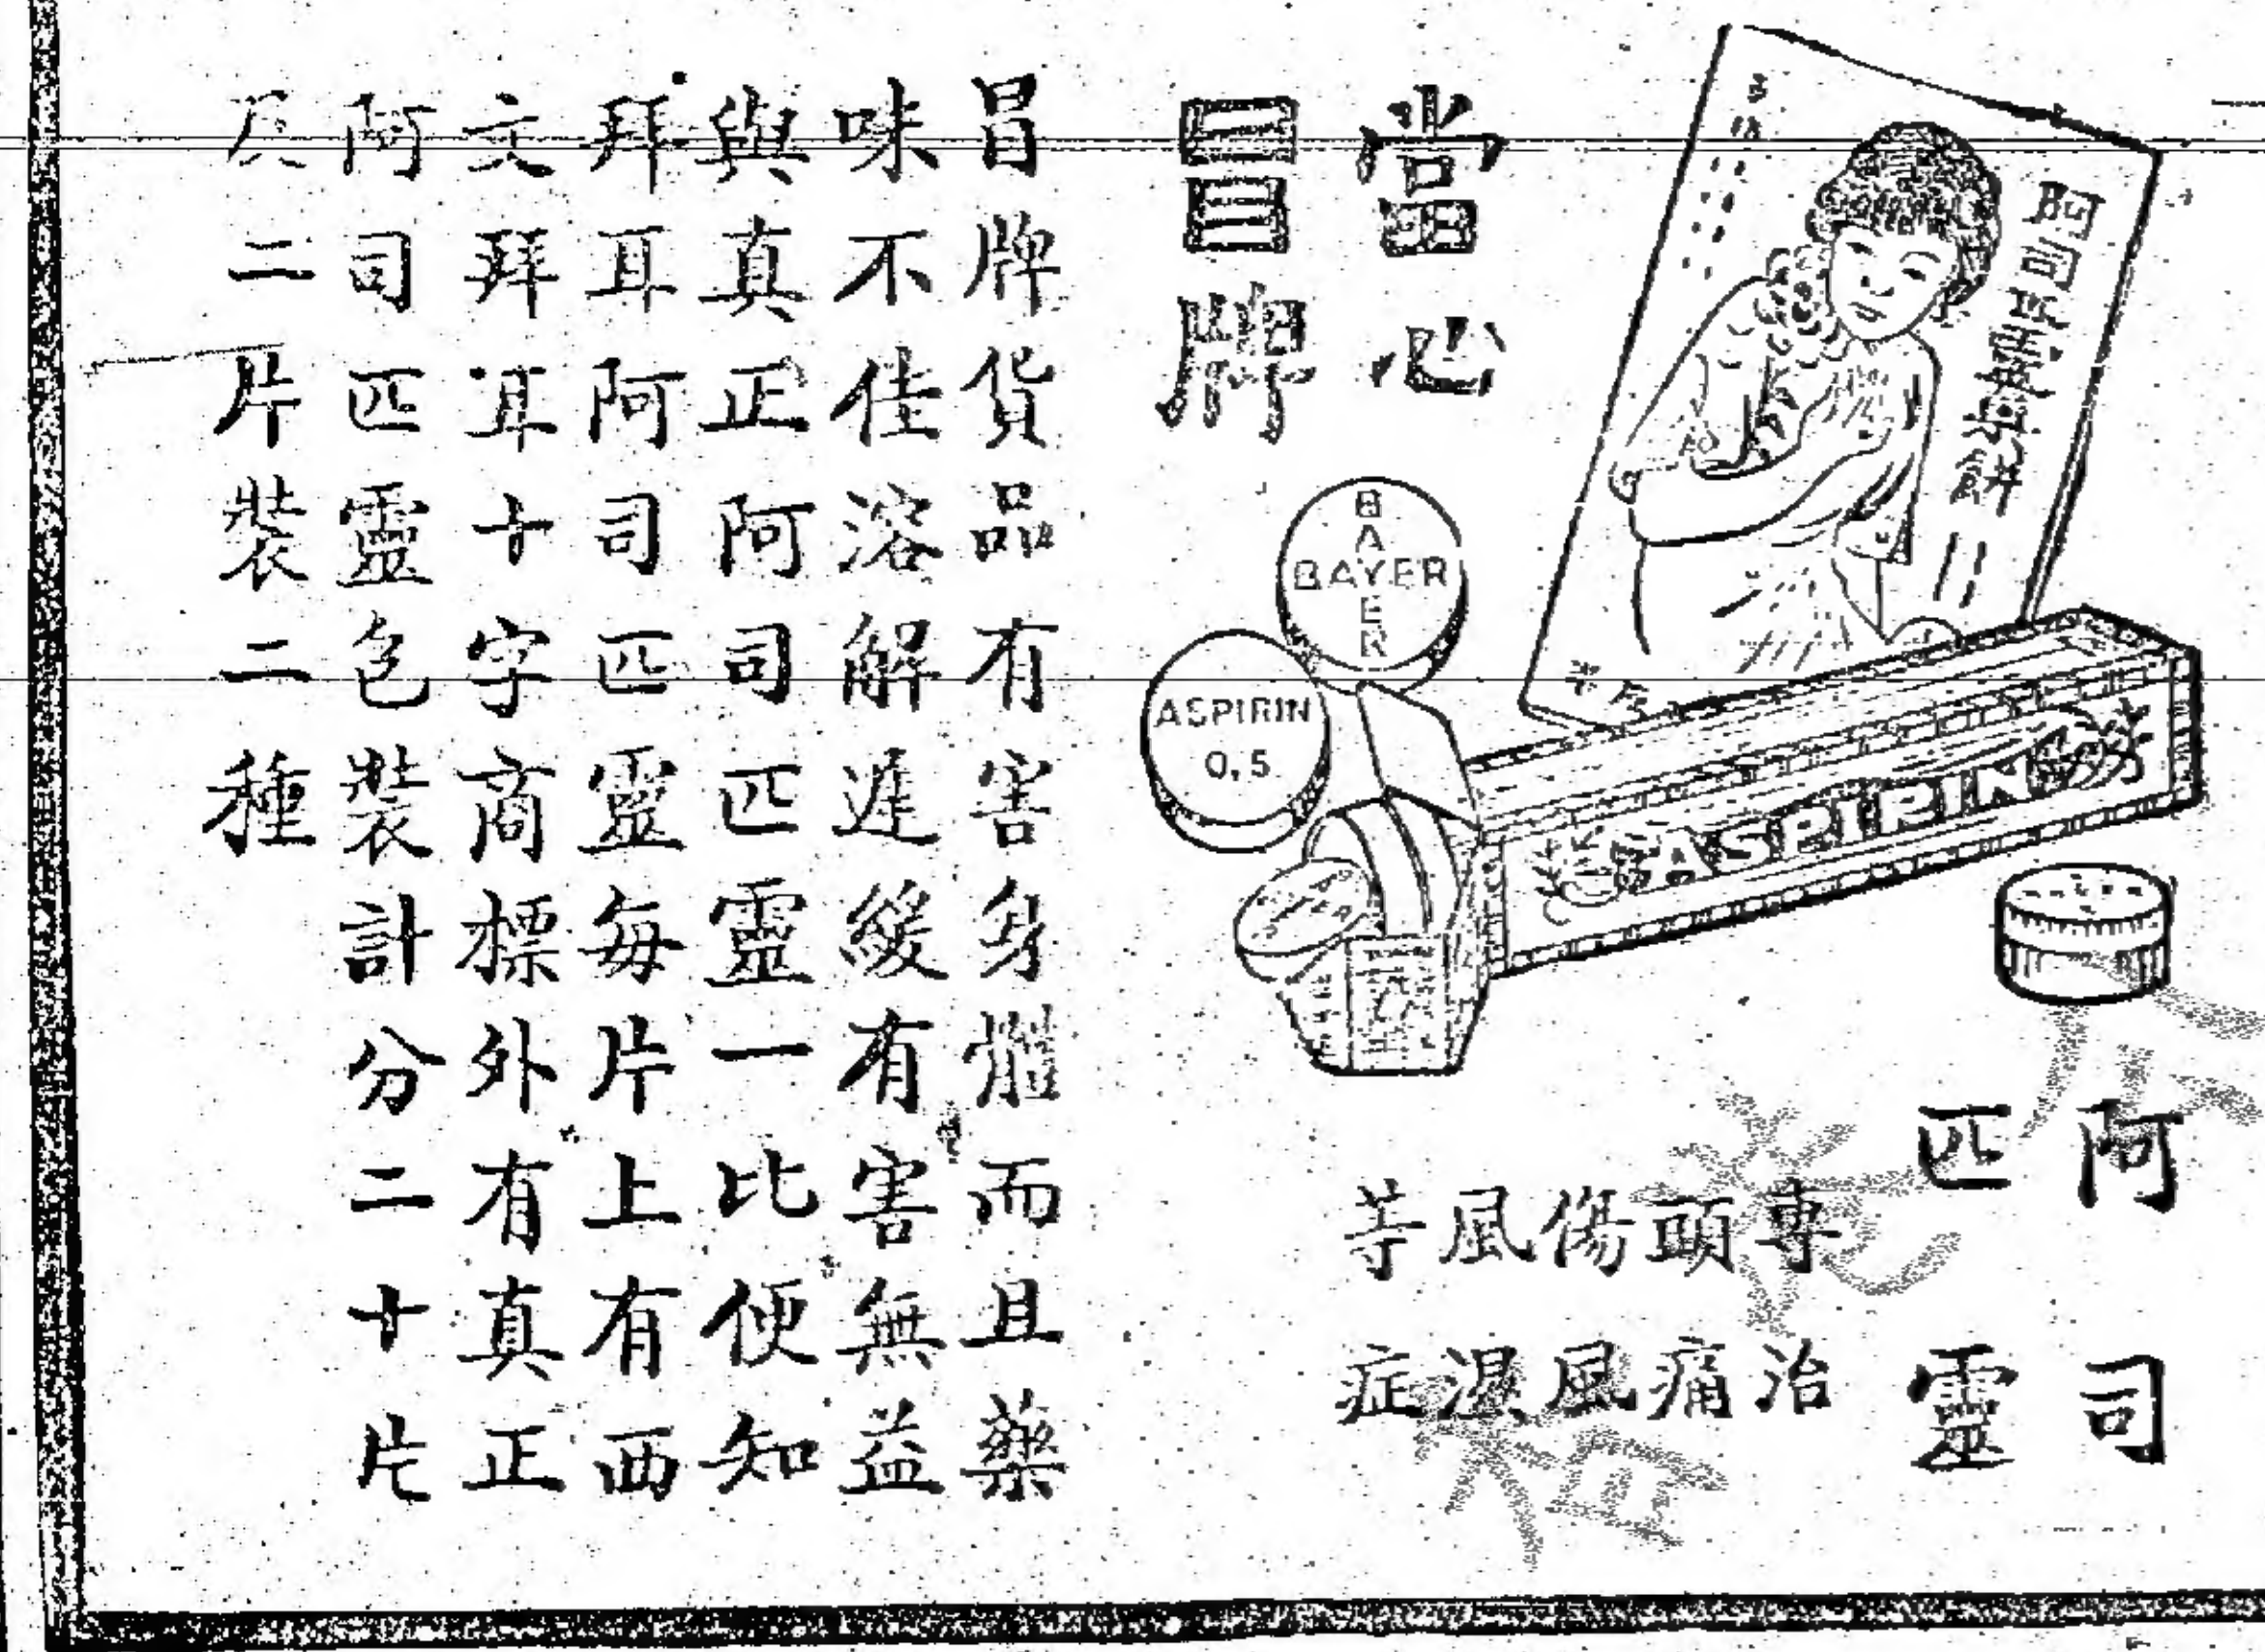 阿司
匹靈
專治
頭痛
傷風
風濕
等症
ASPIRIN
BAYER
BAYER
ASPIRIN
0,5
當心
冒牌
冒牌貨品有害身體而且藥
味不佳溶解遲緩有害無益
與真正阿司匹靈一比便知
拜耳阿司匹靈每片上有西
文拜耳十字商標外有真正
阿司匹靈包裝計分二十片
及二片裝二種